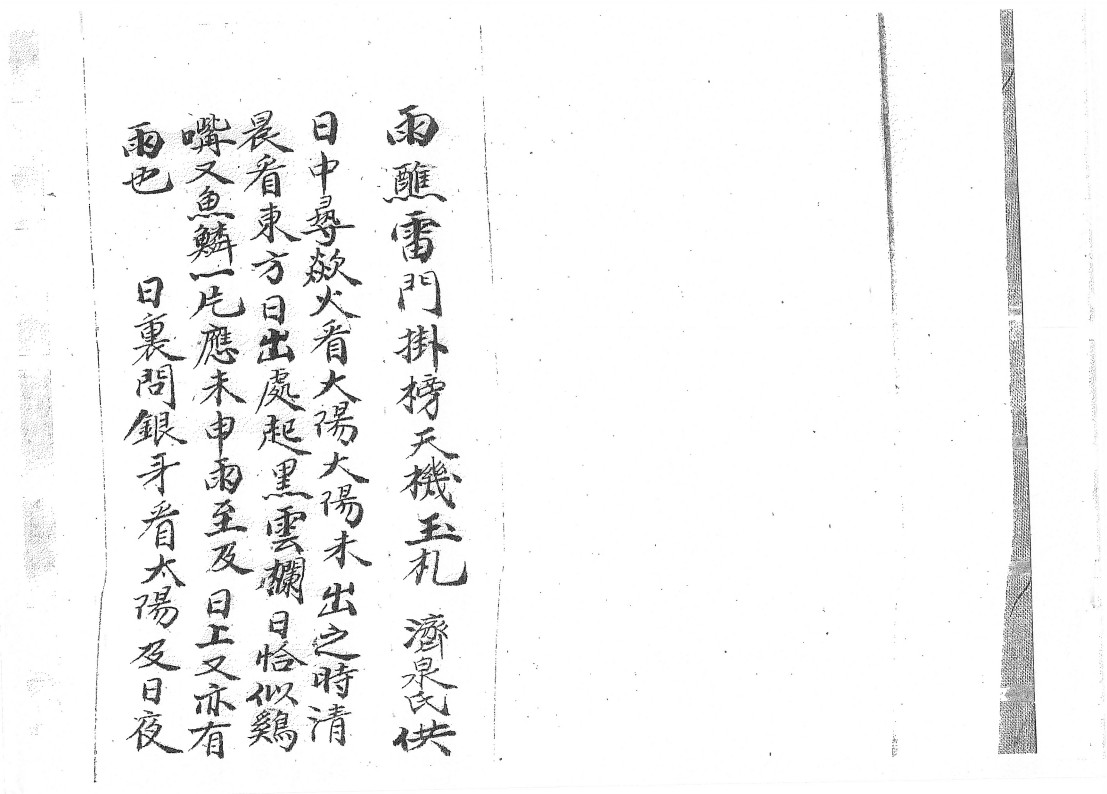 雨醮雷門掛榜天機玉札 濟泉氏供
日中尋歘火看大陽大陽未出之時清
晨看東方日出處起黑雲欄日恰似鷄
嘴又魚鱗一片應未申雨至及日上又亦有
雨也 日裏問銀牙看太陽及日夜